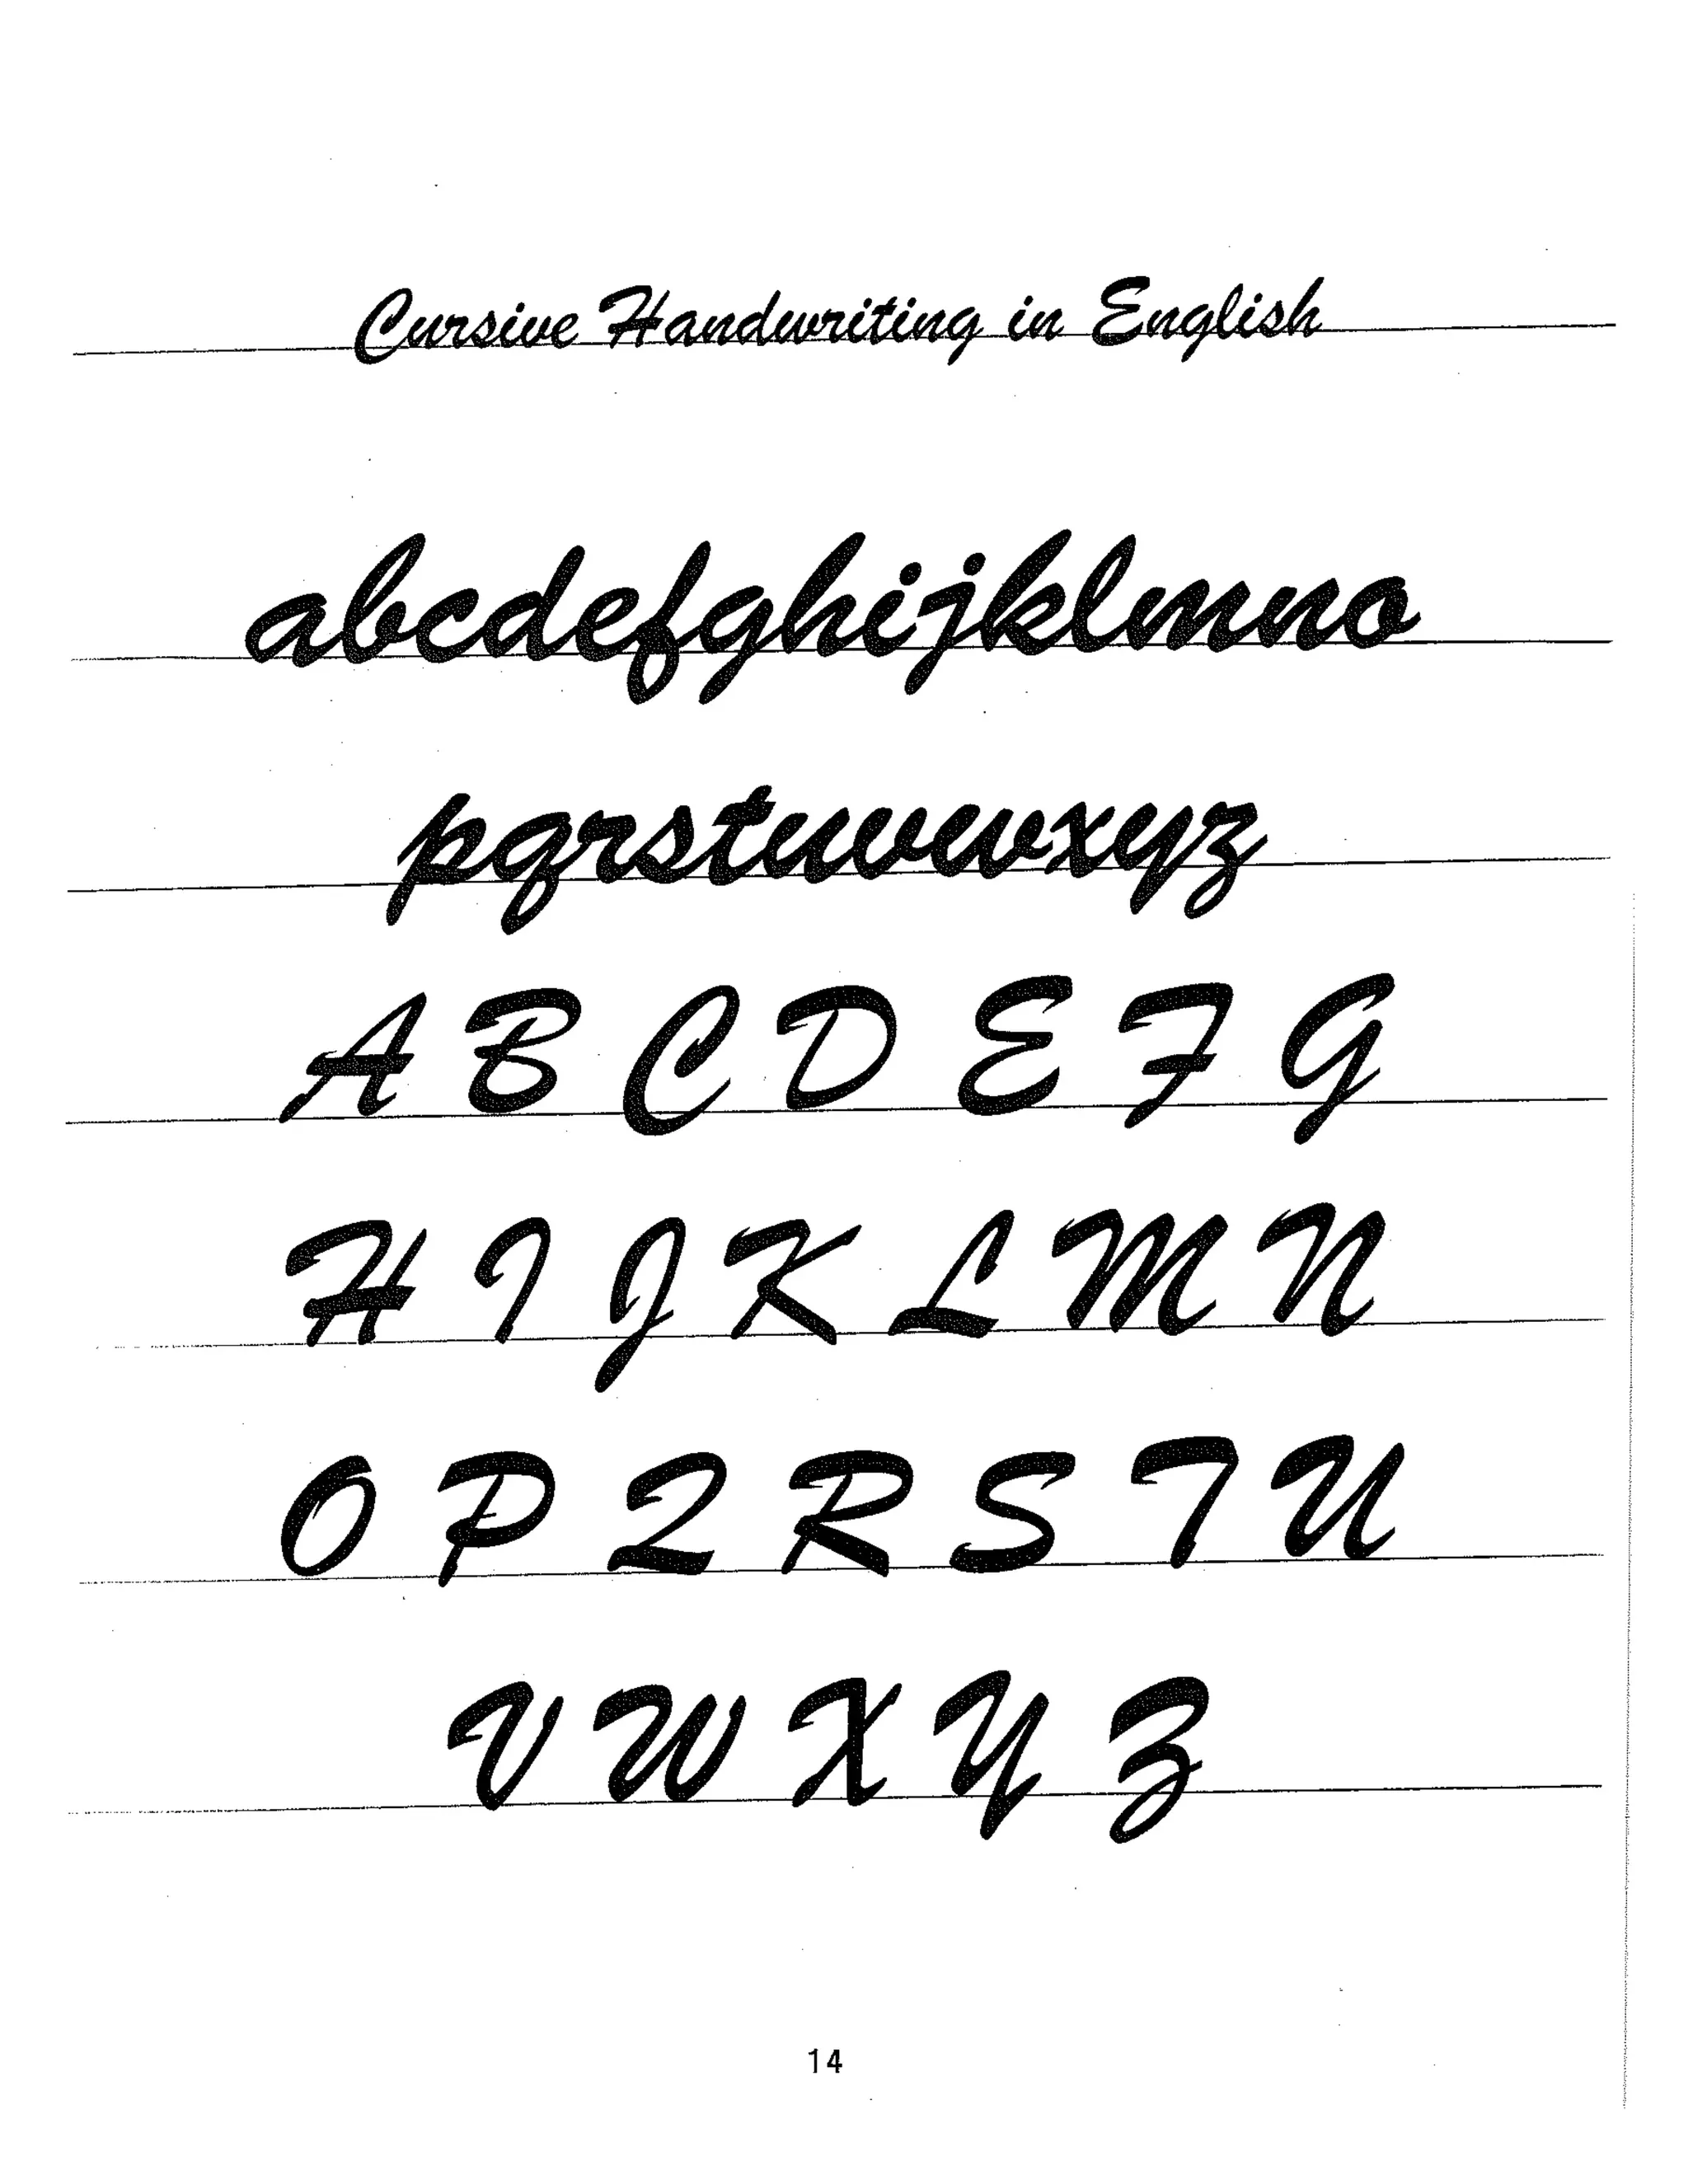 Cursive Handwriting in English
abcdefghijklmno
pqrstuvwxyz
A B C D E F G
H I J K L M N
O P Q R S T U
V W X Y Z
14